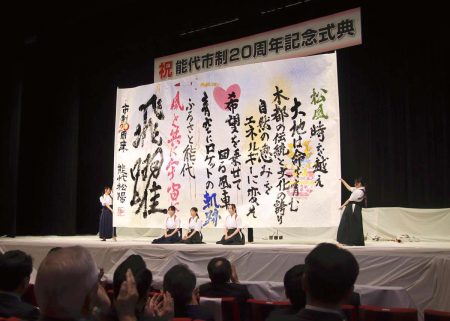 祝 能代市制20周年記念式典
松風時を越え
大地に命育む
木都の伝統と文化を誇り
自然の恵みを
エネルギーに変え
希望を乗せて
回る風車
青空にロケットの軌跡
ふるさと能代
風と共に宇宙へ
飛翔
市制
能代松陽